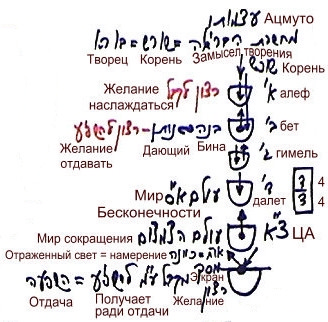 עצמותו Ацмуто
מחשבת הבריאה = שורש = בורא
Творец Корень Замысел творения
שורש Корень
Желание наслаждаться רצון לקבל א' алеф
Желание отдавать רצון להשפיע - נותן בינה ב' бет
Дающий Бина
ג' гимель
Мир Бесконечности עולם א"ס ד' далет ד 4
ד 4
Мир сокращения עולם הצמצום צ"א ЦА
Отраженный свет = намерение או"ח = כוונה
מסך Экран
השפעה = מקבל ע"מ להשפיע רצון
Отдача Получает ради отдачи Желание